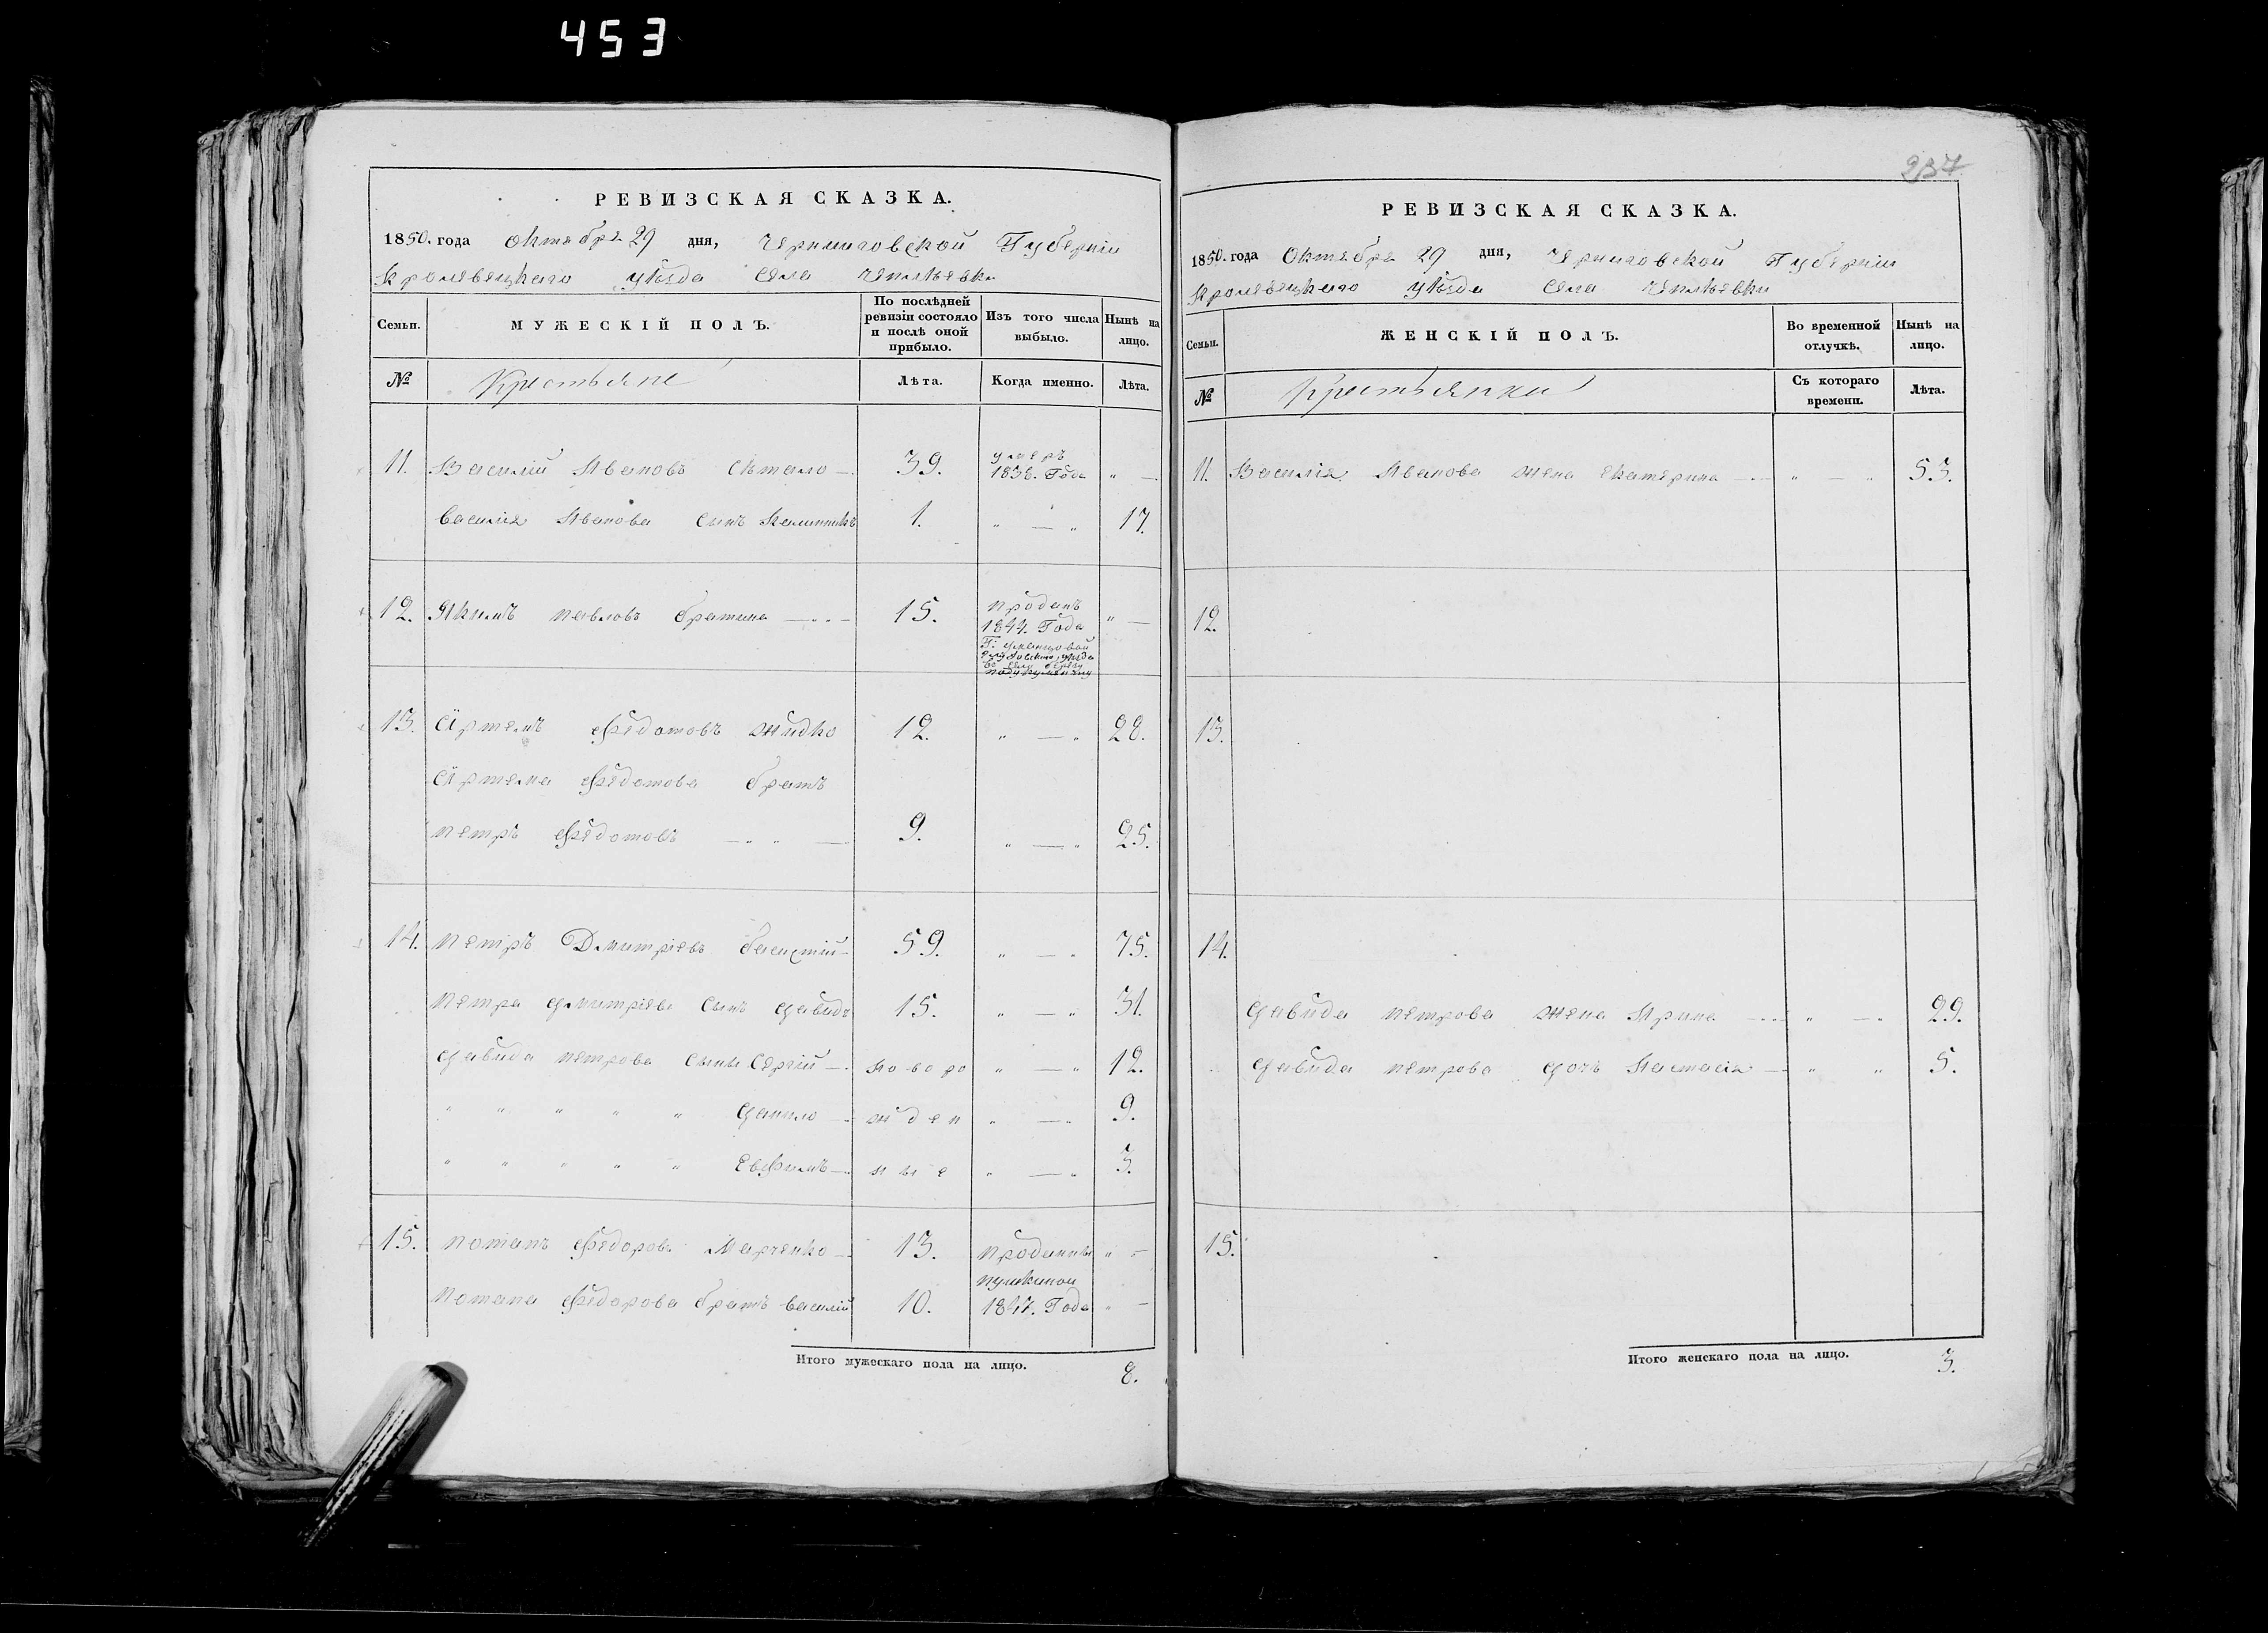 453
РЕВИЗСКАЯ СКАЗКА.
1850. года октября 29 дня, Черниговской Губерніи
Кролевецкаго уѣзда села Чеплѣевки
Семьи.
МУЖЕСКІЙ ПОЛЪ.
По послѣдней ревизіи состояло и послѣ оной прибыло.
Изъ того числа выбыло.
Нынѣ на лицо.
№
Крестьяне
Лѣта.
Когда именно.
Лѣта.
11. Василій Ивановъ 39. умеръ 1838. Года " —
Василія Иванова сынъ 1. " — " 17.
12. Якимъ Павловъ братина 15. проданъ 1844. Года " —
13. Артемъ Федотовъ Жидко 12. " — " 28.
Артема Федотова братъ
Петръ Федотовъ 9. " — " 25.
14. Петръ Дмитріевъ 59. " — " 75.
Петра Дмитріева сынъ Давидъ 15. " — " 31.
Давида Петрова сыны Сергій новоро " — " 12.
" " " " " Данило жден " — " 9.
" " " " " Евфимъ ные " — " 3.
15. Потапъ Федоровъ Марченко 13. проданы " —
Пушкиной
Потапа Федорова братъ Василій 10. 1847. Года " —
Итого мужескаго пола на лицо. 8.
237
РЕВИЗСКАЯ СКАЗКА.
1850. года Октября 29 дня, Черниговской Губерніи
Кролевецкаго уѣзда села Чеплѣевки
Семьи.
ЖЕНСКІЙ ПОЛЪ.
Во временной отлучкѣ.
Нынѣ на лицо.
№
Крестьянки
Съ котораго времени.
Лѣта.
11. Василія Иванова жена Екатерина " — " 53.
12.
13.
14.
Давида Петрова жена Ирина " — " 29.
Давида Петрова дочь Настасія " " 5.
15.
Итого женскаго пола на лицо. 3.